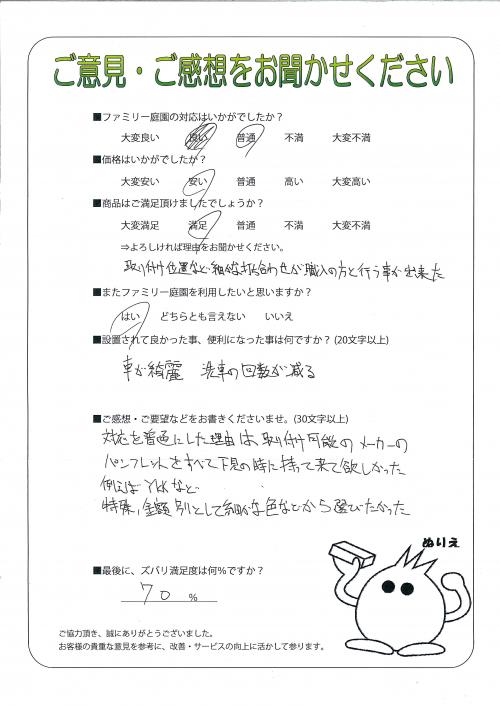 ご意見・ご感想をお聞かせください
■ファミリー庭園の対応はいかがでしたか？
大変良い 良い 普通 不満 大変不満
■価格はいかがでしたか？
大変安い 安い 普通 高い 大変高い
■商品はご満足頂けましたでしょうか？
大変満足 満足 普通 不満 大変不満
⇒よろしければ理由をお聞かせください。
取り付け位置など細かな打ち合わせが職人の方と行う事が出来た
■またファミリー庭園を利用したいと思いますか？
はい どちらとも言えない いいえ
■設置されて良かった事、便利になった事は何ですか？ (20文字以上)
車が綺麗 洗車の回数が減る
■ご感想・ご要望などをお書きくださいませ。(30文字以上)
対応を普通にした理由は、取り付け可能のメーカーの
パンフレットをすべて下見の時に持って来て欲しかった
例えば YKKなど
特殊、金額別として細かな色などから選びたかった
ぬりえ
■最後に、ズバリ満足度は何％ですか？
70 %
ご協力頂き、誠にありがとうございました。
お客様の貴重な意見を参考に、改善・サービスの向上に活かして参ります。